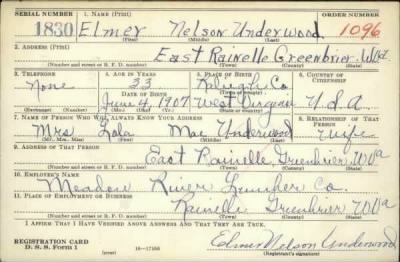 SERIAL NUMBER 1. NAME (Print) ORDER NUMBER
1830 Elmer Nelson Underwood 1096
(First) (Middle) (Last)
2. ADDRESS (Print)
East Rainelle Greenbrier W Va
(Number and street or R. F. D. number) (Town) (County) (State)
3. TELEPHONE 4. AGE IN YEARS 5. PLACE OF BIRTH 6. COUNTRY OF CITIZENSHIP
None 33 Raleigh Co.
DATE OF BIRTH (Town or county)
June 4, 1907 West Virginia U.S.A
(Exchange) (Number) (Mo.) (Day) (Yr.) (State or country)
7. NAME OF PERSON WHO WILL ALWAYS KNOW YOUR ADDRESS 8. RELATIONSHIP OF THAT PERSON
Mrs. Lola Mae Underwood Wife
(Mr., Mrs., Miss) (First) (Middle) (Last)
9. ADDRESS OF THAT PERSON
East Rainelle, Greenbrier W Va
(Number and street or R. F. D. number) (Town) (County) (State)
10. EMPLOYER'S NAME
Meadow River Lumber Co.
11. PLACE OF EMPLOYMENT OR BUSINESS
Rainelle Greenbrier W Va
(Number and street or R. F. D. number) (Town) (County) (State)
I AFFIRM THAT I HAVE VERIFIED ABOVE ANSWERS AND THAT THEY ARE TRUE.
REGISTRATION CARD
D. S. S. Form 1 16—17105 Elmer Nelson Underwood
(Registrant's signature)